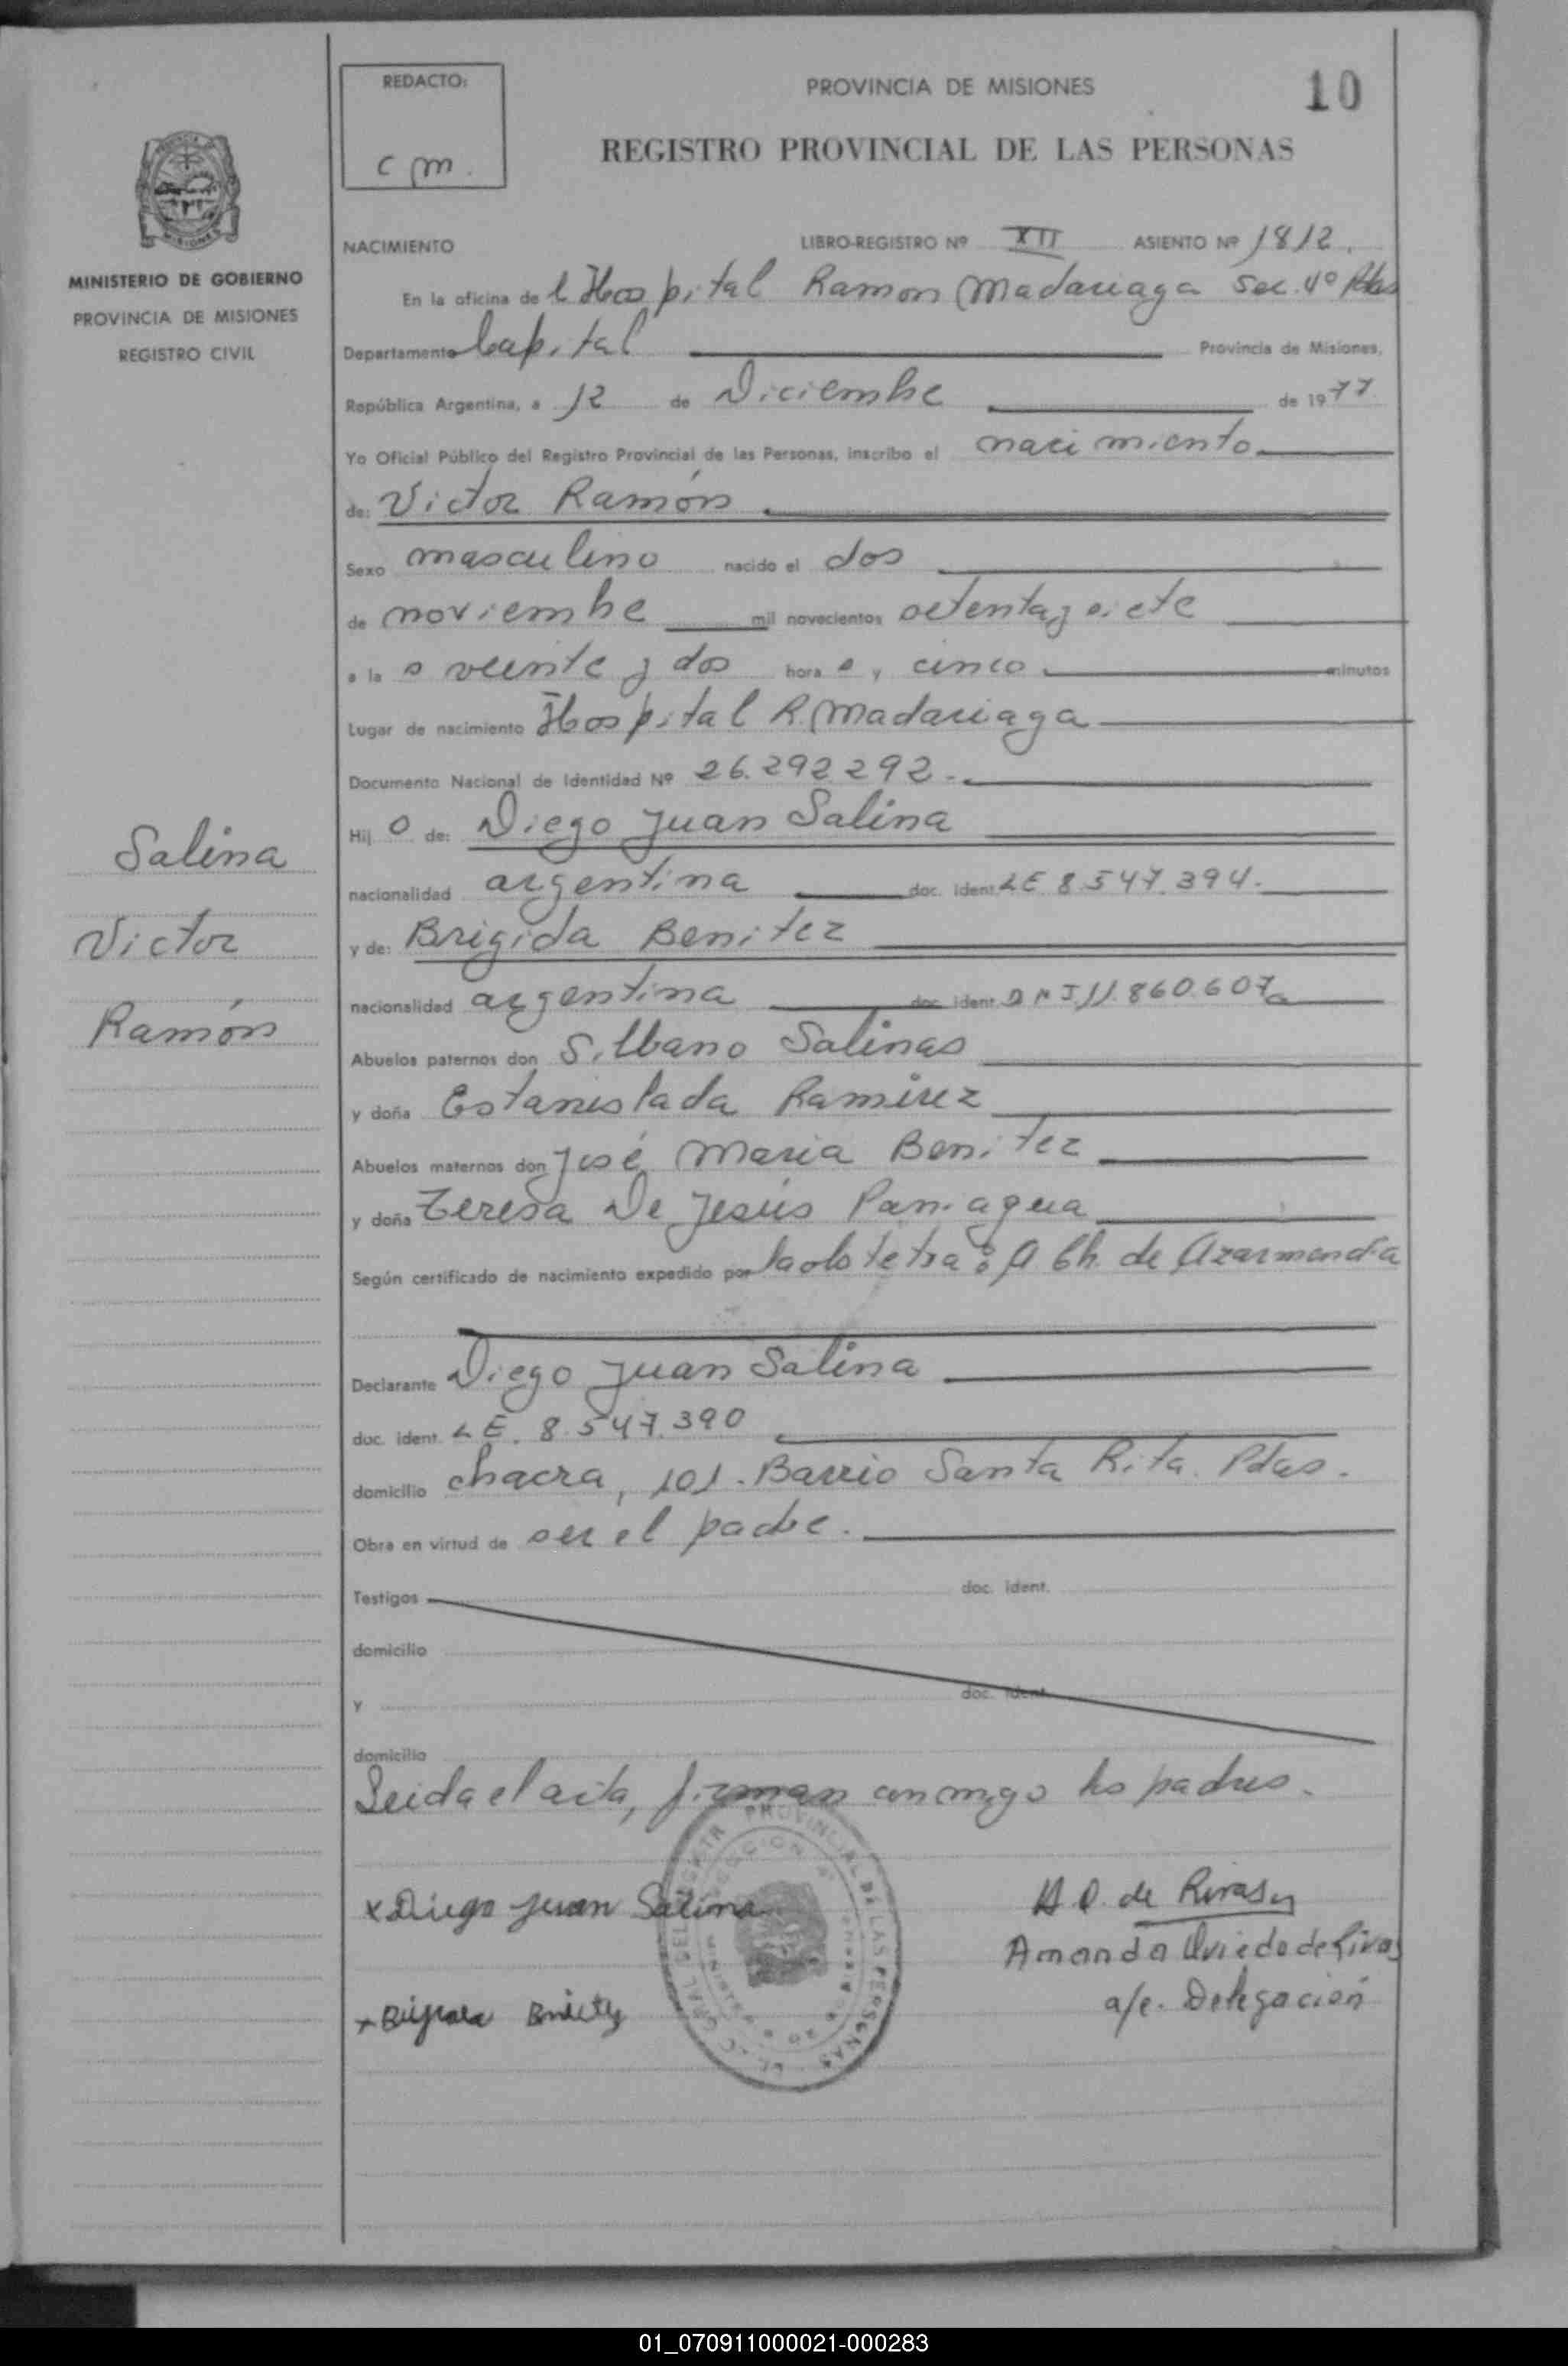 REDACTO:
c m.
PROVINCIA DE MISIONES
10
REGISTRO PROVINCIAL DE LAS PERSONAS
MINISTERIO DE GOBIERNO
PROVINCIA DE MISIONES
REGISTRO CIVIL
NACIMIENTO LIBRO-REGISTRO Nº XII ASIENTO Nº 1812.
En la oficina de l Hospital Ramon Madariaga Sec. 4º Pdas
Departamento Capital Provincia de Misiones,
República Argentina, a 12 de Diciembre de 1977
Yo Oficial Público del Registro Provincial de las Personas, inscribo el nacimiento
de: Victor Ramón
Sexo masculino nacido el dos
de noviembre mil novecientos setenta y siete
a la s veinte y dos hora s y cinco minutos
Lugar de nacimiento Hospital R. Madariaga
Documento Nacional de Identidad Nº 26.292292.
Hij o de: Diego Juan Salina
nacionalidad argentina doc. ident. LE 8.547.394.
y de: Brigida Benitez
nacionalidad argentina doc. ident. DNI 11.860.607
Abuelos paternos don Silbano Salinas
y doña Estanislada Ramirez
Abuelos maternos don José Maria Benitez
y doña Teresa De Jesús Paniagua
Según certificado de nacimiento expedido por la obstetra: A Ch. de Azarmendia
Declarante Diego Juan Salina
doc. ident. LE. 8.547.390
domicilio chacra, 101. Barrio Santa Rita. Pdas.
Obra en virtud de ser el padre.
Testigos doc. ident.
domicilio
y doc. ident.
domicilio
Leida el acta, firman conmigo los padres.
Salina
Victor
Ramón
x Diego Juan Salina
A O. de Rivas
Amanda Oviedo de Rivas
a/c. Delegación
x Brigida
PROVINCIAL DE LAS PERSONAS
01_070911000021-000283